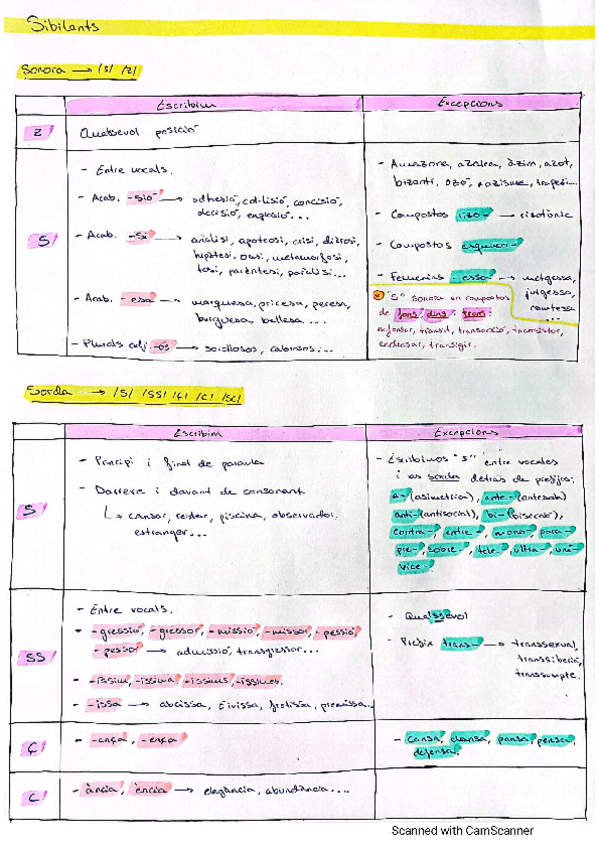 Sibilants
Sonora → /s/ /z/
Escribim
Excepcions
Z
Qualsevol posició
S
- Entre vocals.
- Acab. -sió → adhesió, col·lisió, concisió,
decisió, explosió...
- Acab. -si → anàlisi, apoteosi, crisi, dièresi,
hipòtesi, oasi, metamorfosi,
tesi, parèntesi, paràlisi...
- Acab. -esa → marquesa, pricesa, peresa,
burguesa, bellesa ....
- Plurals adj. -ós → sorollosos,
- Amazona, azalea, àzim, azot,
bizantí, ozó, nazisme, trapezi...
- Compostos rizo- → rizotònic
- Compostos esquizo-
- Femenins -essa → metgessa,
jutgessa,
comtessa
...
"S" sonora en compostos
de fons, dins, trans:
enfonsar, trànsit, transacció, transistor,
endinsar, transigir.
Sorda → /s/ /ss/ /ç/ /c/ /sc/
Escribim
Excepcions
S
- Principi i final de paraula
- Darrere i davant de consonant
↳ cansar, restar, piscina, observador,
estranger...
- Escribimos "s" entre vocales
i es sorda detrás de prefijos:
a- (asimetrica), ante- (antesala)
anti- (antisocial), bi-
contra-, entre-, mono-, para-
pre-, sobre-, tele-, ultra-, uni-
vice-.
SS
- Entre vocals.
- -gressió, -gressor, -missió, -missor, -pessió
-pessor → admissió, transgressor...
- -íssim, -íssima, -íssims, -íssimes
- -issa → abcissa, Eivissa, premissa..
- Qualssevol
- Prefix trans- → transsexual,
transsiberià,
transsumpte.
Ç
- -ança, -ença
- Cansa, dansa, pansa, pensa,
defensa.
C
- ància, ència → elegància, abundància....
Scanned with CamScanner